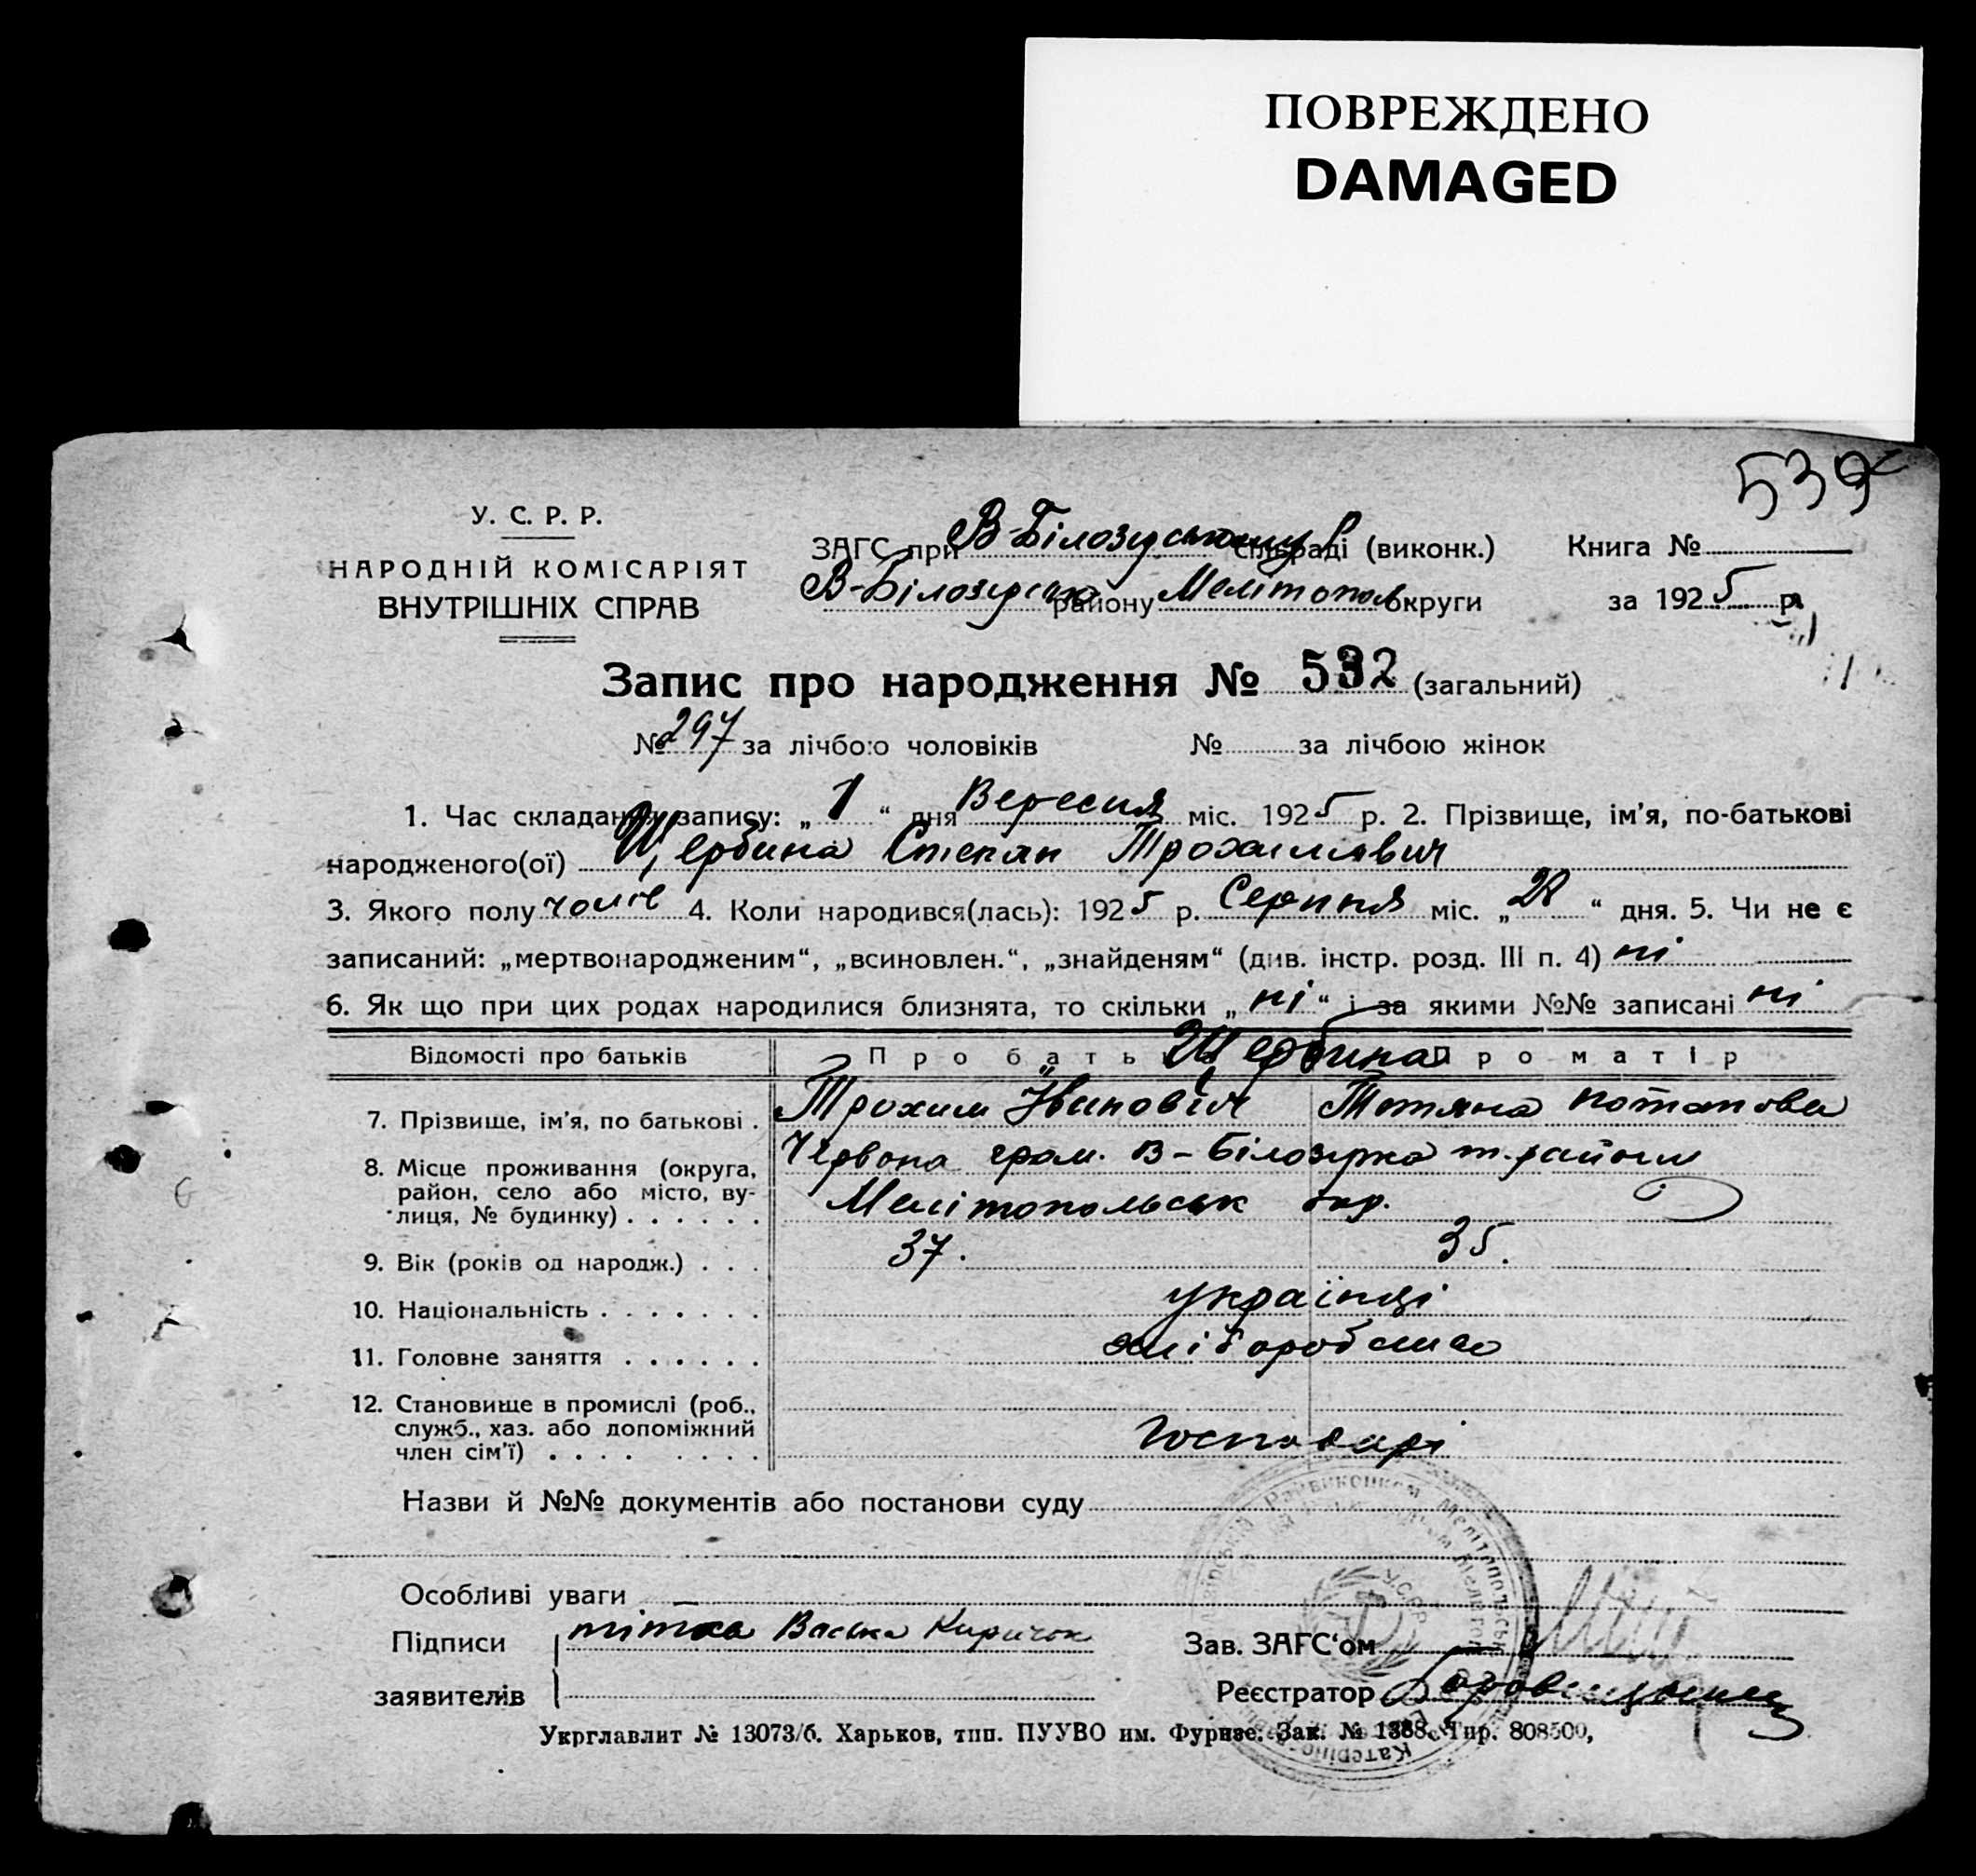 ПОВРЕЖДЕНО
DAMAGED
539
У. С. Р. Р.
НАРОДНІЙ КОМІСАРІЯТ
ВНУТРІШНІХ СПРАВ
ЗАГС при В-Білозирському сільраді (виконк.) Книга №
В-Білозирсько району Мелітопол округи за 1925 р.
Запис про народження № 532 (загальний)
№ 297 за лічбою чоловіків № за лічбою жінок
1. Час складання запису: „ 1 “ дня Вересня міс. 1925 р. 2. Прізвище, ім’я, по-батькові
народженого(ої) Щербина Степан Трохимович
3. Якого полу чолів 4. Коли народився(лась): 1925 р. Серпня міс. „ 28 “ дня. 5. Чи не є
записаний: „мертвонародженим“, „всиновлен.“, „знайденям“ (див. інстр. розд. III п. 4) ні
6. Як що при цих родах народилися близнята, то скільки „ ні “ і за якими №№ записані ні
Відомості про батьків Про батька Щербина Про матір
7. Прізвище, ім’я, по батькові . Трохим Іванович Тотяна Потапова
8. Місце проживання (округа, Червона грам. В-Білозирка т. району
район, село або місто, ву- Мелітопольськ окр.
лиця, № будинку) . . . . . .
9. Вік (років од народж.) . . . 37. 35.
10. Національність . . . . . . . українці
11. Головне заняття . . . . . . хліборобство
12. Становище в промислі (роб.,
служб., хаз. або допоміжний
член сім’ї) . . . . . . . . Господарі
Назви й №№ документів або постанови суду
Особливі уваги
Підписи тітка Васька Киричок Зав. ЗАГС‘ом
заявителів Реєстратор
Укрглавлит № 13073/б. Харьков, тип. ПУУВО им. Фрунзе. Зак. № 1388. Тир. 808500,
Райвиконком Мелітопольськ
У.С.Р.Р.